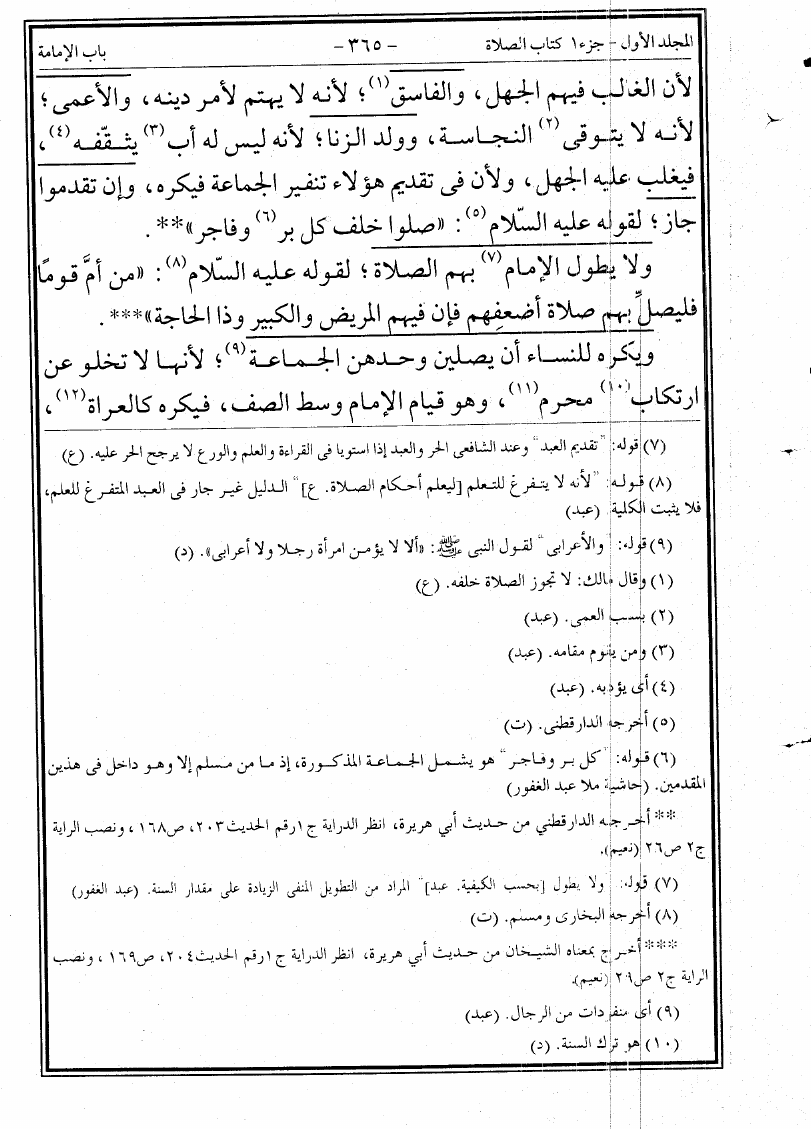 المجلد الأول – جزء ١ كتاب الصلاة - ٣٦٥ - باب الإمامة
لأن الغالب فيهم الجهل، والفاسق(١)؛ لأنه لا يهتم لأمر دينه، والأعمى؛
لأنه لا يتوقى(٢) النجاسة، وولد الزنا؛ لأنه ليس له أب(٣) يثقّفه(٤)،
فيغلب عليه الجهل، ولأن فى تقديم هؤلاء تنفير الجماعة فيكره، وإن تقدموا
جاز؛ لقوله عليه السّلام(٥): «صلوا خلف كل بر(٦) وفاجر»**.
ولا يطول الإمام(٧) بهم الصلاة؛ لقوله عليه السّلام(٨): «من أمَّ قومًا
فليصلِّ بهم صلاة أضعفِهم فإن فيهم المريض والكبير وذا الحاجة»***.
ويكره للنساء أن يصلين وحدهن الجماعة(٩)؛ لأنها لا تخلو عن
ارتكاب(١٠) محرم(١١)، وهو قيام الإمام وسط الصف، فيكره كالعراة(١٢)،
(٧) قوله: "تقديم العبد" وعند الشافعى الحر والعبد إذا استويا فى القراءة والعلم والورع لا يرجح الحر عليه. (ع)
(٨) قوله: "لأنه لا يتفرغ للتعلم [ليعلم أحكام الصلاة. ع]" الدليل غير جار فى العبد المتفرغ للعلم،
فلا يثبت الكلية (عبد)
(٩) قوله: "والأعرابى" لقول النبى ﷺ: «ألا لا يؤمن امرأة رجلا ولا أعرابى». (د)
(١) وقال مالك: لا تجوز الصلاة خلفه. (ع)
(٢) بسبب العمى. (عبد)
(٣) ومن يقوم مقامه. (عبد)
(٤) أى يؤدبه. (عبد)
(٥) أخرجه الدارقطنى. (ت)
(٦) قوله: "كل بر وفاجر" هو يشمل الجماعة المذكورة، إذ ما من مسلم إلا وهو داخل فى هذين
المقدمين. (حاشية ملا عبد الغفور)
** أخرجه الدارقطني من حديث أبي هريرة، انظر الدراية ج١ رقم الحديث ٢٠٣، ص١٦٨، ونصب الراية
ج٢ ص٢٦ (نعيم).
(٧) قوله: ولا يطول [بحسب الكيفية. عبد]" المراد من التطويل المنفى الزيادة على مقدار السنة. (عبد الغفور)
(٨) أخرجه البخارى ومسلم. (ت)
*** أخرج بمعناه الشيخان من حديث أبي هريرة، انظر الدراية ج١ رقم الحديث ٢٠٤، ص١٦٩، ونصب
الراية ج٢ ص٢٩ (نعيم).
(٩) أى منفردات من الرجال. (عبد)
(١٠) هو ترك السنة. (د)